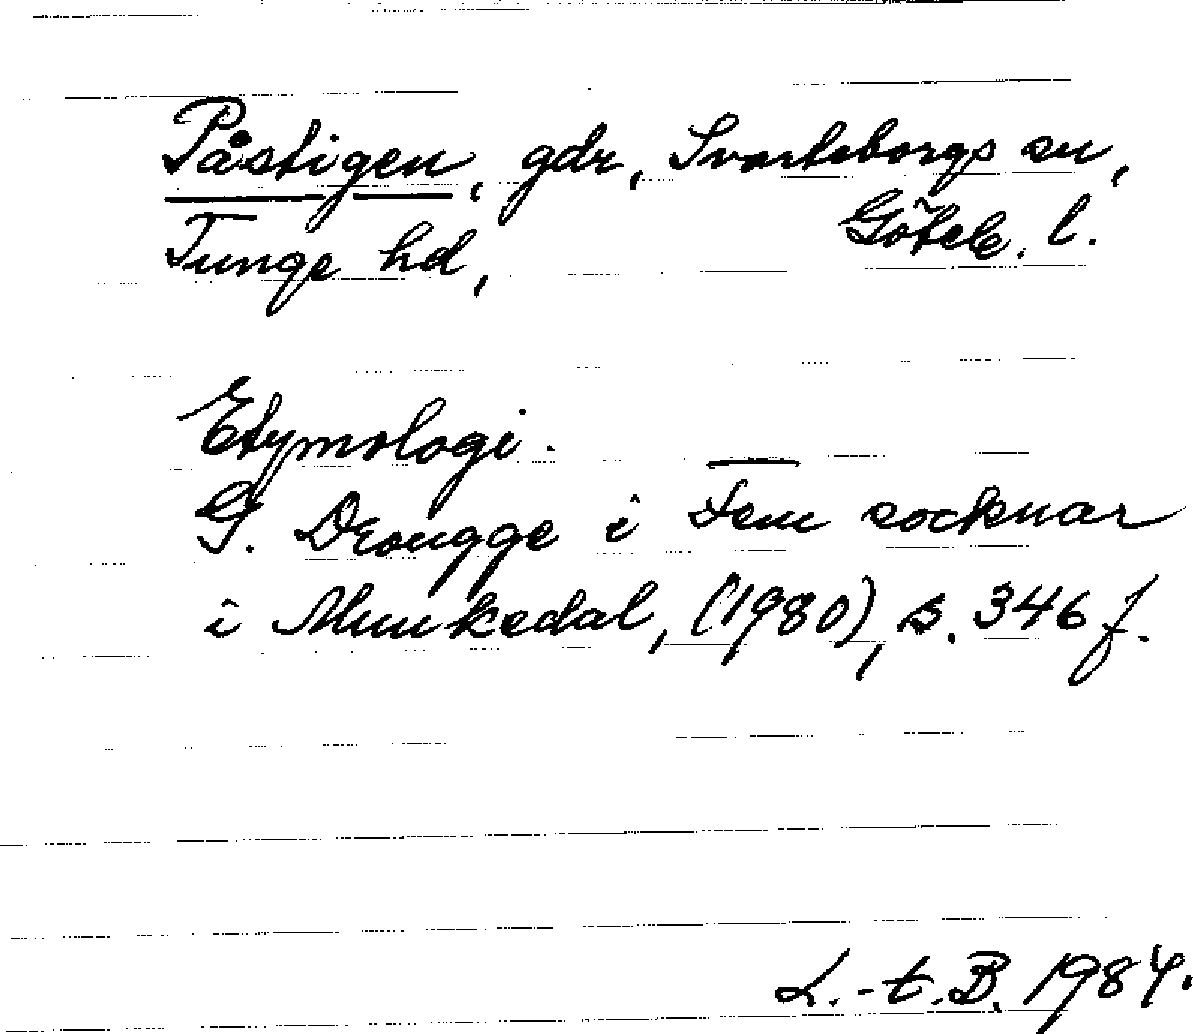 Påstigen, gdr, Svarteborgs sn,
Tunge hd, Göteb. l.
Etymologi.
G. Drougge i Fem socknar
i Munkedal, (1980), s. 346 f.
L.-t. B. 1984.